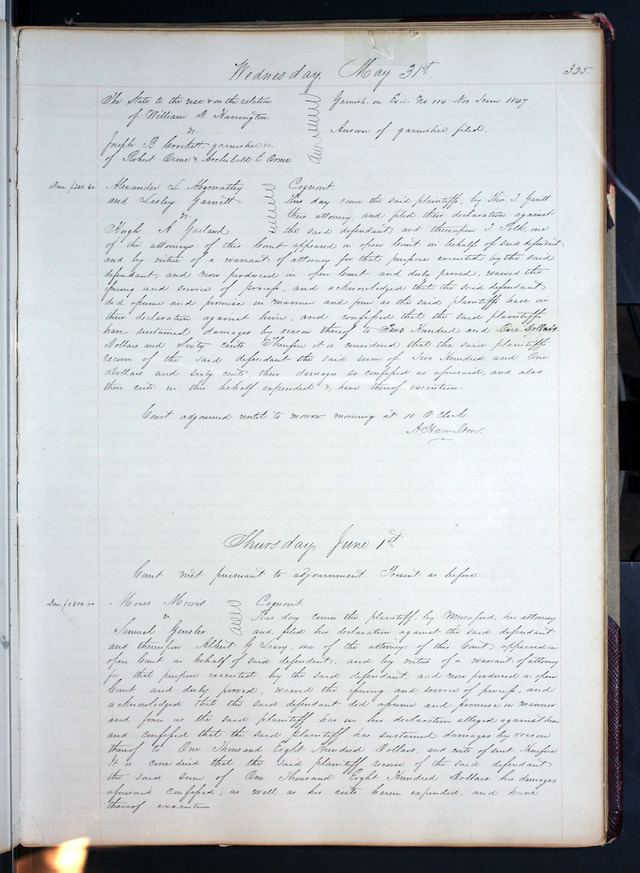 Wednesday May 31st. 325.
The State to the use & on the relation Garnish. on Exn. No 114 Nov Term 1847
of William D. Harrington
vs. Answer of garnishee filed.
Joseph B. Crockett garnishee &c
of Robert Orme & Archibald E Orme
Dam /201.60 Alexander L. Cognovit
and Lesley Garnett This day come the said plaintiffs, by Tho. T. Gantt
vs. their attorney, and filed their declaration against
Hugh A Garland the said defendant, and thereupon T Polk, one
of the attorneys of this Court appeared in open Court in behalf of said defendant
and by virtue of a warrant of attorney for that purpose executed by the said
defendant, and now produced in open Court and duly proved, waived the
issuing and service of process, and acknowledged that the said defendant
did assume and promise in manner and form as the said plaintiffs have in
their declaration against him, and confessed that the said plaintiffs
have sustained damages by reason thereof to Two Hundred and One Dollars
Dollars and Sixty cents. Therefore it is considered that the said plaintiffs
recover of the said defendant the said sum of Two Hundred and One
Dollars and sixty cents, their damages so confessed as aforesaid, and also
their costs in this behalf expended & have thereof execution.
Court adjourned until to morrow morning at 10 O'Clock
A Hamilton.
Thursday, June 1st
Court met pursuant to adjournment Present as before.
Dam /1800.00 Moses Morris Cognovit
vs. This day comes the plaintiff, by his attorney
Samuel Gensler and filed his declaration against the said defendant
and thereupon Albert G Leary, one of the attorneys of this Court, appeared in
open Court in behalf of said defendant, and by virtue of a warrant of attorney
for that purpose executed by the said defendant, and now produced in open
Court and duly proved, waived the issuing and service of process, and
acknowledged that the said defendant did assume and promise in manner
and form as the said plaintiff has in his declaration alleged against him
and confessed that the said plaintiff has sustained damages by reason
thereof to One Thousand Eight Hundred Dollars, and costs of suit. Therefore
it is considered that the said plaintiff recover of the said defendant
the said sum of One Thousand Eight Hundred Dollars, his damages
aforesaid confessed, as well as his costs herein expended, and have
thereof execution